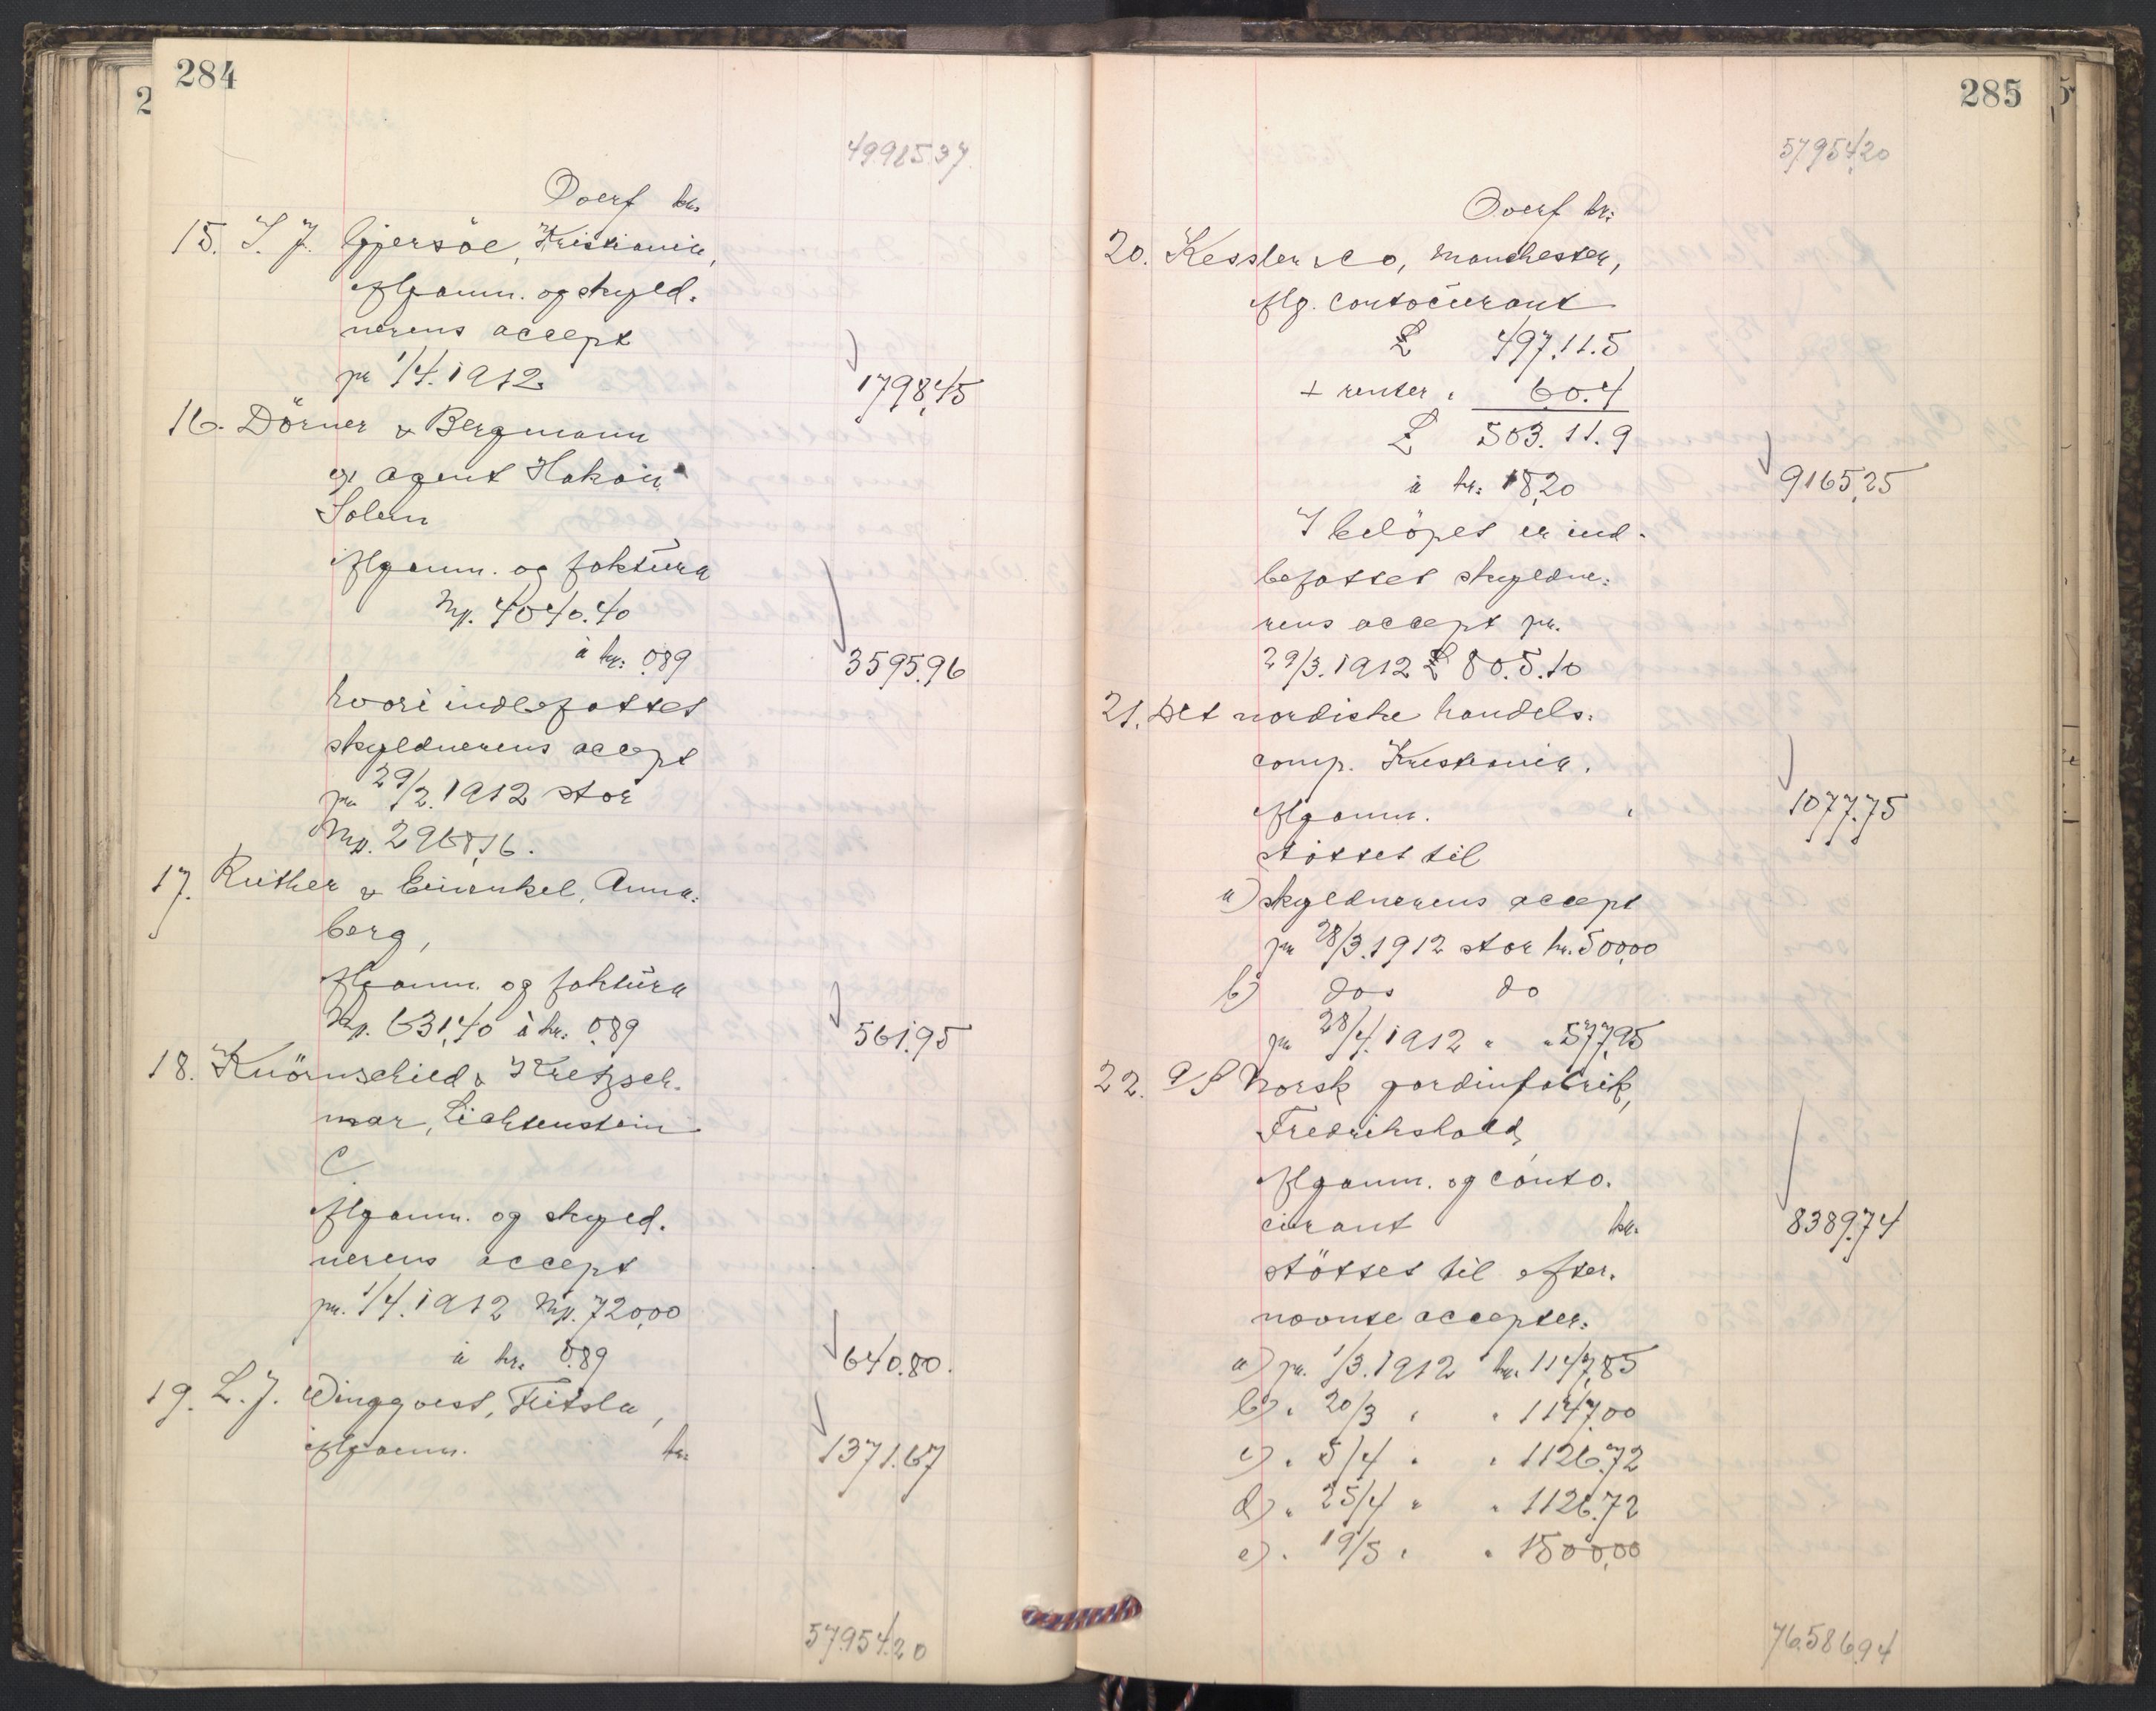 284
49985.37
Overf kr.
15. S. J. Gjersöe, Kristiania,
Afganm. og skyld-
nerens accept
pr 1/4. 1912.
1798,45
16. Dörner & Bergmann
v/ agent Hakon
Solem
Afganm. og faktura
Mp. 4040.40
à kr: 0.89
3595.96
hvori indbefattet
skyldnerens accept
pr 29/2. 1912 stor
Mp. 2968,16.
17. Reither & Einenkel, Anna-
berg,
Afganm. og faktura
Mp. 631,40 à kr: 0,89
561.95
18. Knörnschild & Kretzsch-
mar, Lichtenstein
C.
Afganm. og skyld-
nerens accept
pr. 1/4. 1912 Mp. 720,00
à kr. 0.89
640.80.
19. L. J. Wingqvist, Fritsla,
Afganm. kr.
1371.67
57954.20
285
57954,20
Overf kr:
20. Kessler & Co, Manchester,
Afg. contocurant
£ 497.11.5
+ renter " 6.0.4
£ 503.11.9
à kr: 18,20
9165,25
I belöpet er ind-
befattet skyldne-
rens accept pr.
29/3. 1912 £ 80.5.10
21. Det nordiske handels-
comp. Kristiania.
Afganm. "
1077.75
støttet til
a) skyldnerens accept
pr 28/3. 1912 stor kr. 500,00
b) dos do
pr 28/4. 1912 " " 577,95
22. A/S Norsk gardinfabrik,
Fredrikshald,
Afganm. og conto-
curant kr.
8389.74
støttet til efter-
nævnte accepter:
a) pr. 1/3. 1912 kr. 1147,85
b) " 20/3 " " 1147,00
c) " 5/4 " " 1126.72
d) " 25/4 " " 1126.72
e) " 19/5 " " 1500,00
76.586.94